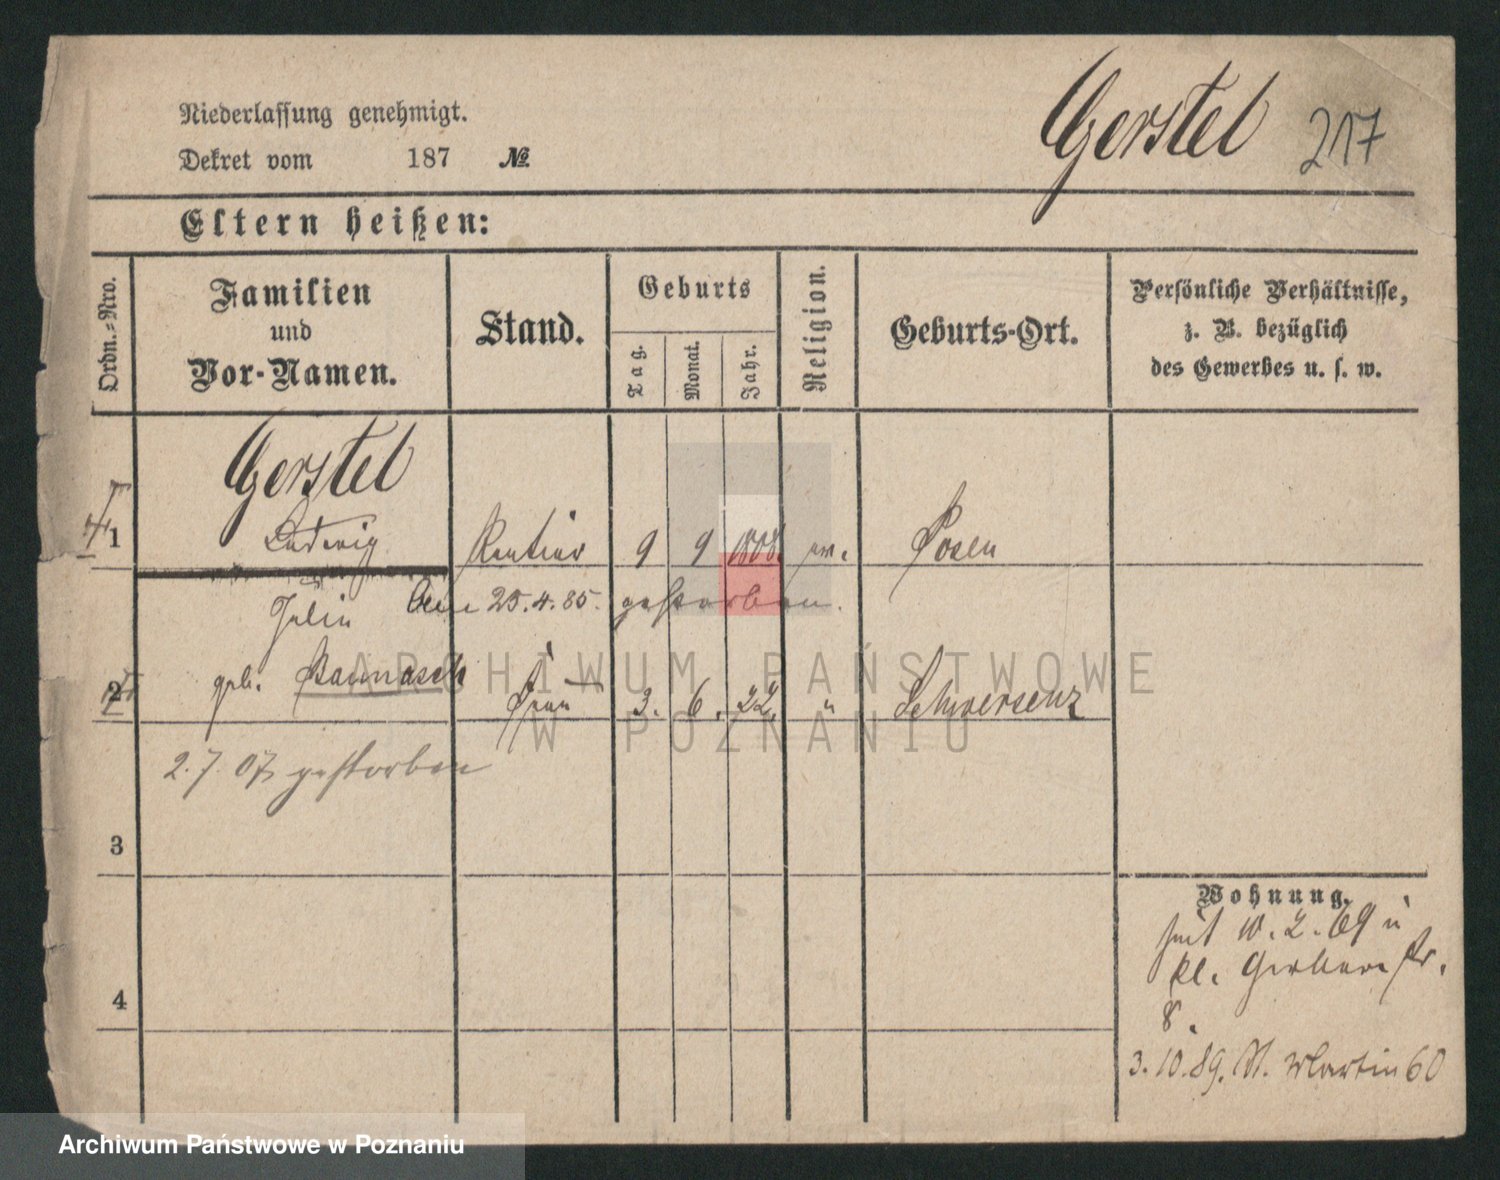 Niederlassung genehmigt.
Gerstel 217
Dekret vom 187 №
Eltern heißen:
Ordn.=Nro.
Familien
und
Vor-Namen.
Stand.
Geburts
Tag.
Monat.
Jahr.
Religion.
Geburts-Ort.
Persönliche Verhältnisse,
z. B. bezüglich
des Gewerbes u. s. w.
Gerstel
1 Ludwig Rentier 9 9 1808. Posen
Am 25.4.85. gestorben.
Julie
2 geb. Frau 3. 6. 22. " Schwersenz
2.7.07 gestorben
3
4
Wohnung.
seit 10.2.69 in
kl. Gerberstr.
8.
3.10.89. St. Martin 60
ARCHIWUM PAŃSTWOWE
W POZNANIU
Archiwum Państwowe w Poznaniu